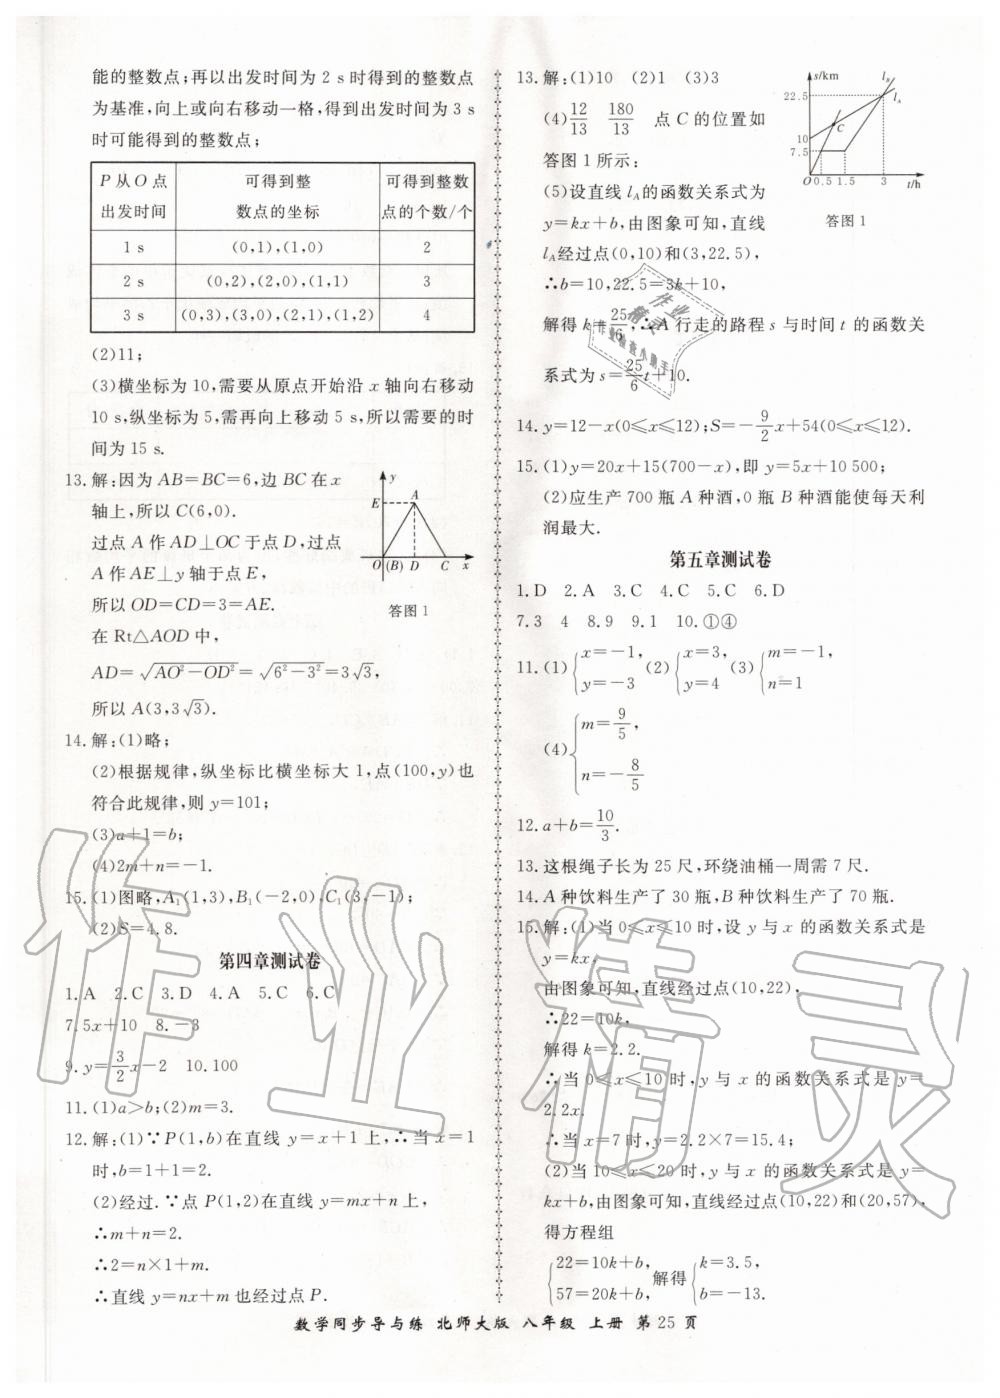 能的整数点;再以出发时间为 2 s 时得到的整数点
为基准,向上或向右移动一格,得到出发时间为 3 s
时可能得到的整数点;
P 从 O 点
出发时间
可得到整
数点的坐标
可得到整数
点的个数/个
1 s
(0,1),(1,0)
2
2 s
(0,2),(2,0),(1,1)
3
3 s
(0,3),(3,0),(2,1),(1,2)
4
(2)11;
(3)横坐标为 10,需要从原点开始沿 x 轴向右移动
10 s,纵坐标为 5,需再向上移动 5 s,所以需要的时
间为 15 s.
13.解:因为 AB=BC=6,边 BC 在 x
轴上,所以 C(6,0).
过点 A 作 AD⊥OC 于点 D,过点
A 作 AE⊥y 轴于点 E,
所以 OD=CD=3=AE.
在 Rt△AOD 中,
AD=√(AO²−OD²)=√(6²−3²)=3√3,
所以 A(3,3√3).
y
E
A
O
(B)
D
C
x
答图 1
14.解:(1)略;
(2)根据规律,纵坐标比横坐标大 1,点(100,y)也
符合此规律,则 y=101;
(3)a+1=b;
(4)2m+n=-1.
15.(1)图略,A₁(1,3),B₁(-2,0),C₁(3,-1);
(2)S=4.8.
第四章测试卷
1.A 2.C 3.D 4.A 5.C 6.C
7.5x+10 8.-3
9.y=3/2x-2 10.100
11.(1)a>b;(2)m=3.
12.解:(1)∵P(1,b)在直线 y=x+1 上,∴当 x=1
时,b=1+1=2.
(2)经过.∵点 P(1,2)在直线 y=mx+n 上,
∴m+n=2.
∴2=n×1+m.
∴直线 y=nx+m 也经过点 P.
13.解:(1)10 (2)1 (3)3
(4)12/13 180/13 点 C 的位置如
答图 1 所示:
(5)设直线 l_A的函数关系式为
y=kx+b,由图象可知,直线
l_A经过点(0,10)和(3,22.5),
∴b=10,22.5=3k+10,
解得 k=25/6,∴A 行走的路程 s 与时间 t 的函数关
系式为 s=25/6t+10.
s/km
l_B
l_A
22.5
C
10
7.5
O
0.5
1.5
3
t/h
答图 1
14.y=12-x(0≤x≤12);S=-9/2x+54(0≤x≤12).
15.(1)y=20x+15(700-x),即 y=5x+10 500;
(2)应生产 700 瓶 A 种酒,0 瓶 B 种酒能使每天利
润最大.
第五章测试卷
1.D 2.A 3.C 4.C 5.C 6.D
7.3 4 8.9 9.1 10.①④
11.(1){x=-1, y=-3 (2){x=3, y=4 (3){m=-1, n=1
(4){m=9/5, n=-8/5
12.a+b=10/3.
13.这根绳子长为 25 尺,环绕油桶一周需 7 尺.
14.A 种饮料生产了 30 瓶,B 种饮料生产了 70 瓶.
15.解:(1)当 0≤x≤10 时,设 y 与 x 的函数关系式是
y=kx,
由图象可知,直线经过点(10,22),
∴22=10k,
解得 k=2.2.
∴当 0≤x≤10 时,y 与 x 的函数关系式是 y=
2.2x.
∴当 x=7 时,y=2.2×7=15.4;
(2)当 10≤x≤20 时,y 与 x 的函数关系式是 y=
kx+b,由图象可知,直线经过点(10,22)和(20,57),
得方程组
{22=10k+b, 57=20k+b, 解得{k=3.5, b=-13.
数学同步导与练 北师大版 八年级 上册 第 25 页
作业精灵
作业
精灵